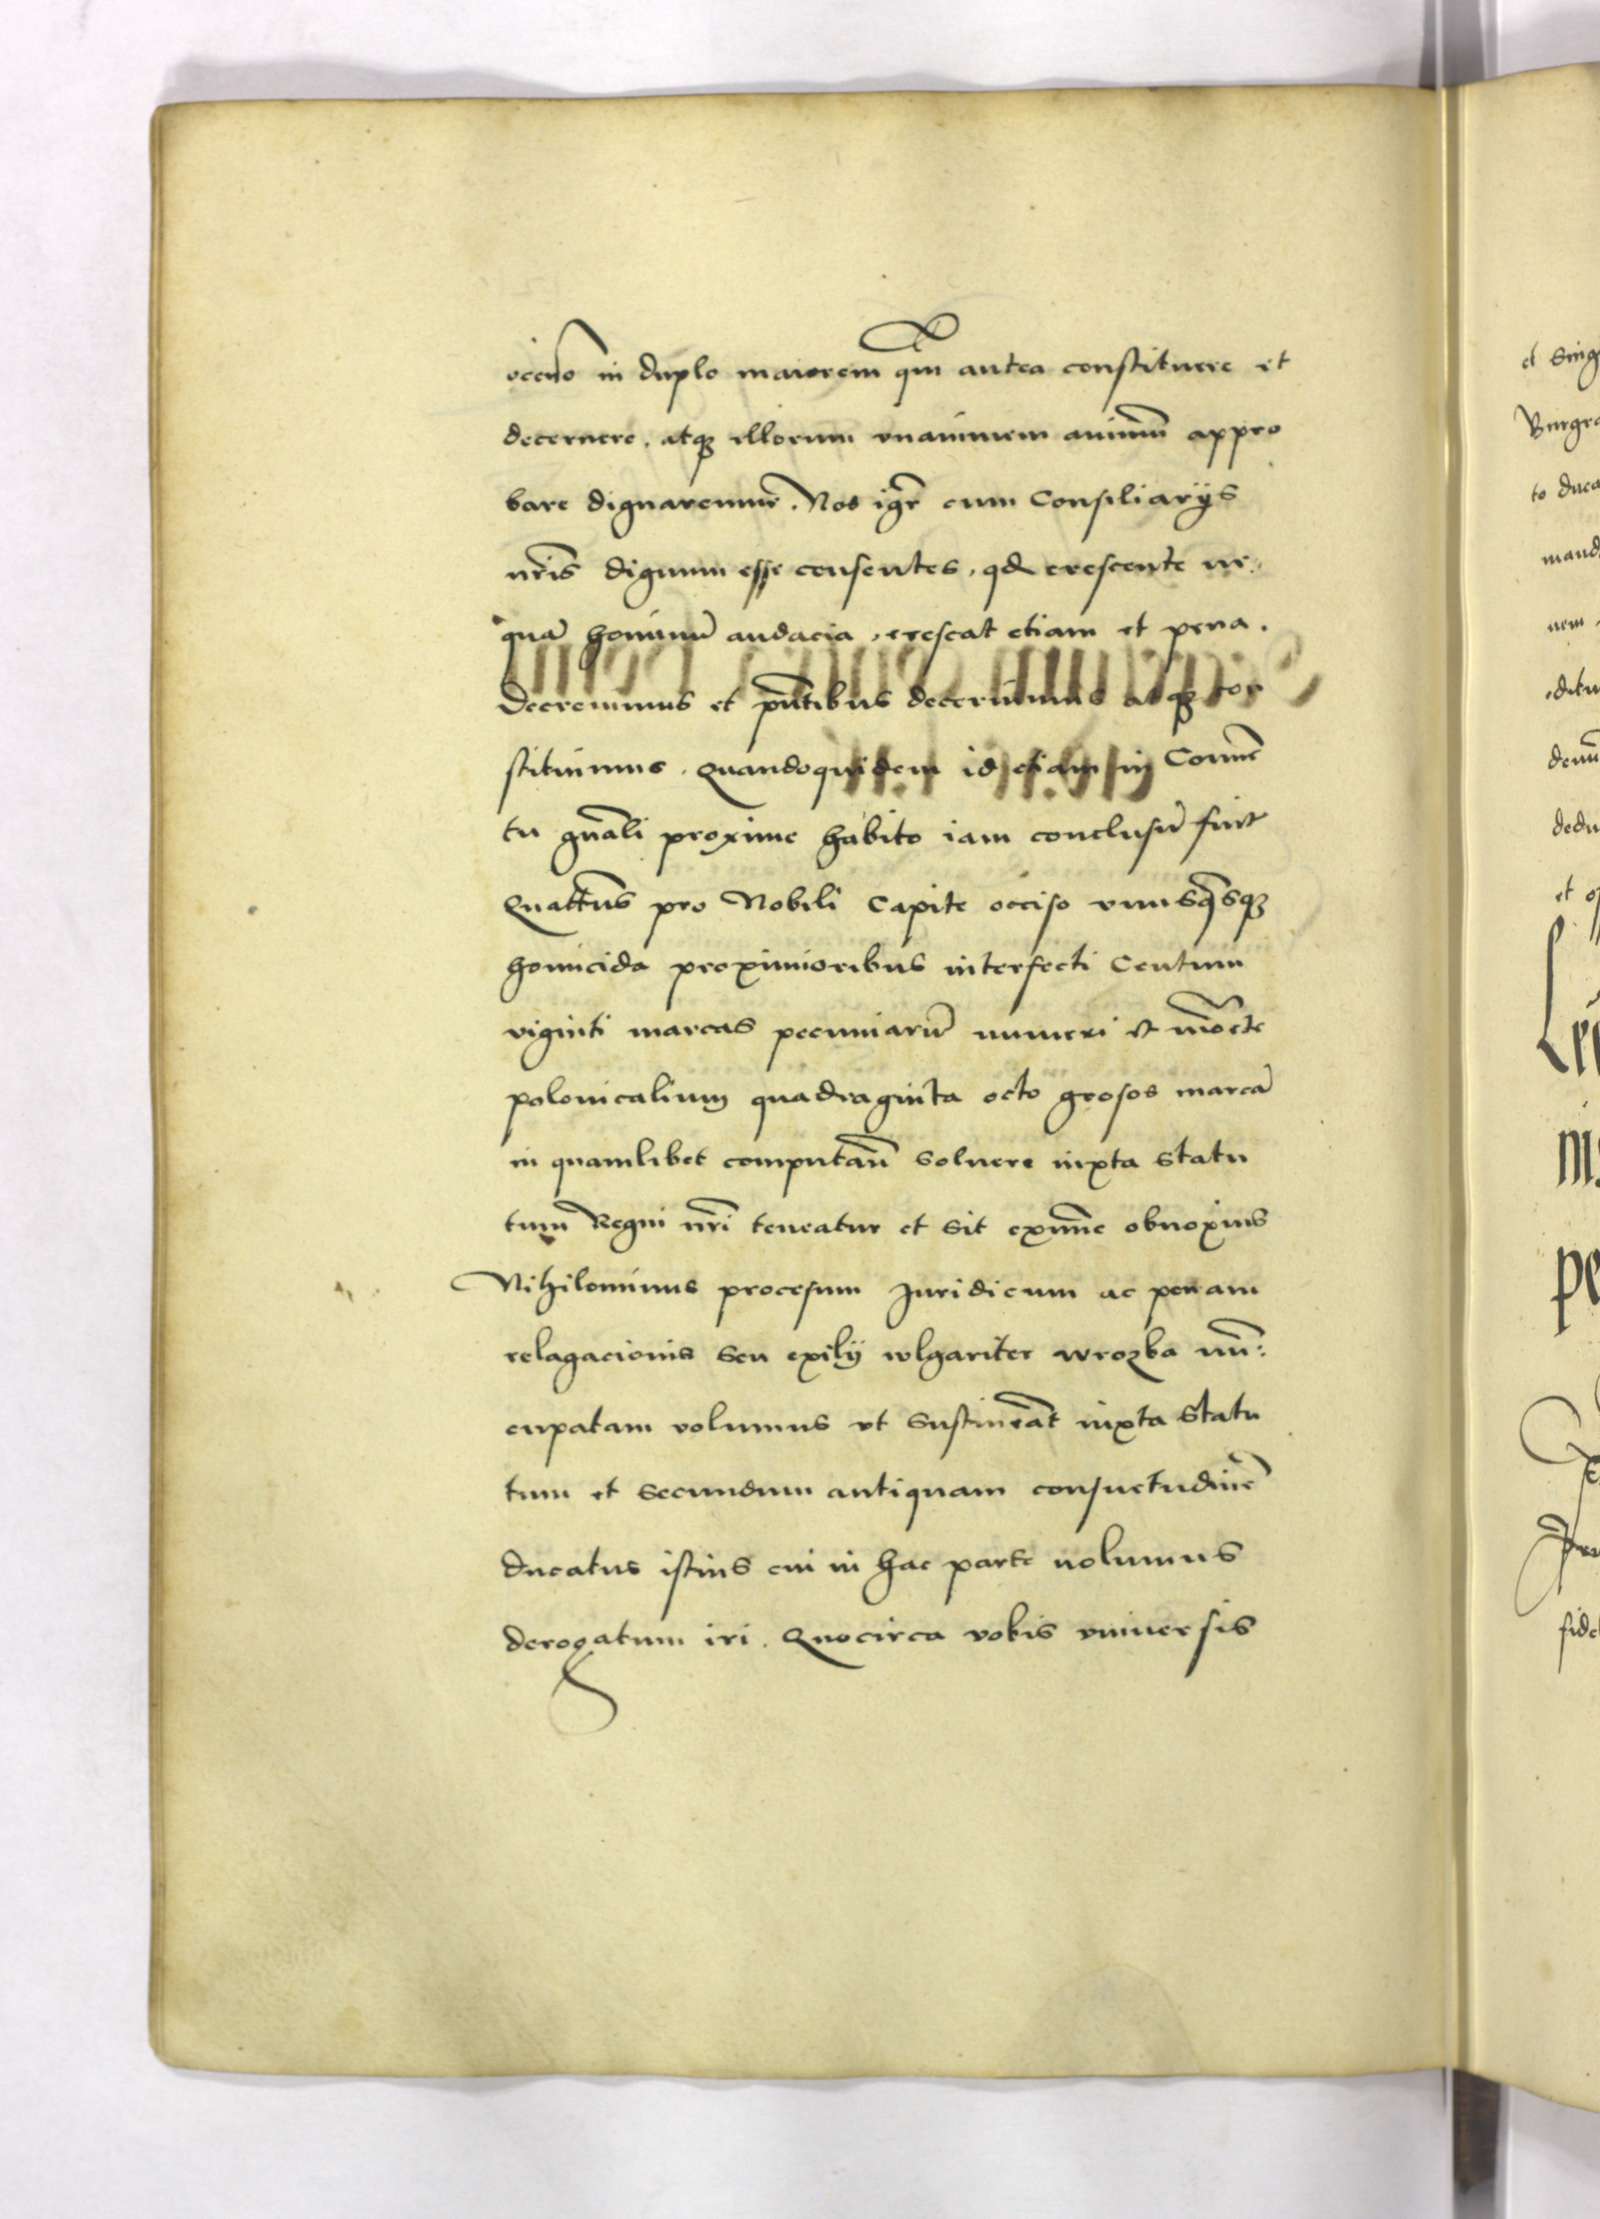 occisio in duplo maiorem qm̃ antea constituere et
decernere . atqȝ illorum vnanimem animũ appro
bare dignaremur̃ . Nos igr̃ cum Consiliarijs
nr̃is dignum esse censentes . qđ crescente ne-
quã hominũ audacia . crescat etiam et pena .
Decreuimus et pñtibus decernimus atqȝ con
stituimus . Quandoquidem id etiam in Conuẽ
tu gñali proxime habito iam conclusũ fuit
Quatẽus pro Nobili Capite occiso vnusq̃sqȝ
homicida proximioribus interfecti Centum
viginti marcas pecuniarũ numeri et mõete
polonicalium quadraginta octo grosos marcã
in quamlibet computañ soluere iuxta statu
tum Regni nr̃i teneatur et sit extũc obnoxius
Nihilominus procesum Juridicum ac penam
relagacionis seu exilij wlgariter wrozba nũ-
cupatam volumus vt sustineãt iuxta statu
tum et secundum antiquam consuetudinẽ
ducatus istius cui in hac parte nolumus
derogatum iri . Quocirca vobis vniuersis
et sing
Burgra
to duca
mand
nem
deduc
et
fidel